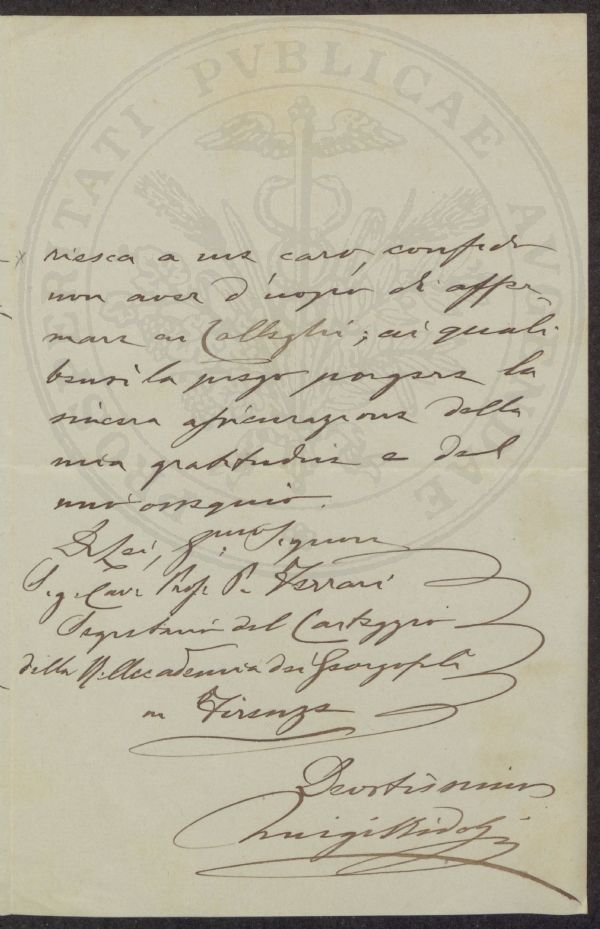 PROSPERITATI PVBLICAE AVGENDAE
riesca a me caro confido
non aver d'uopo di affer-
mare ai Colleghi; ai quali
bensì la prego porgere la
sincera assicurazione della
mia gratitudine e del
mio ossequio.
Di Lei, Signore
Sig. Cav. Prof. P. Ferrari
Segretario del Carteggio
della R. Accademia dei Georgofili
in Firenze
Devotissimo
Luigi Ridolfi